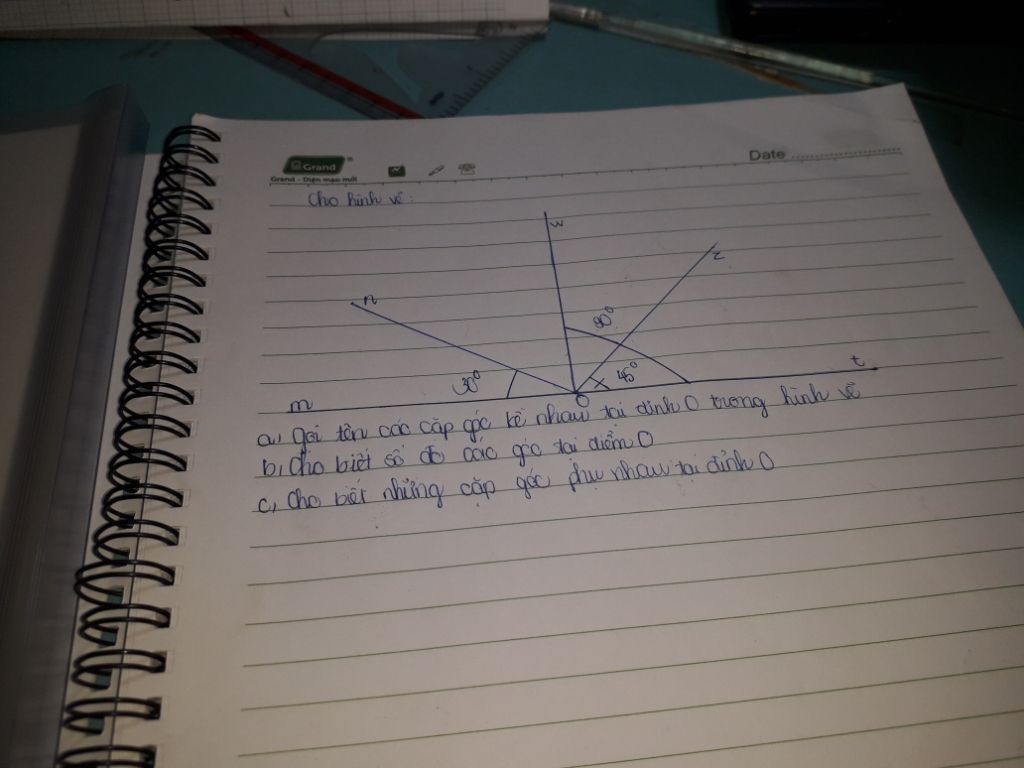 Grand
Grand - Diện mạo mới
Date
Cho hình vẽ:
3
z
n
90°
30°
45°
t
m
O
a, gọi tên các cặp góc kề nhau tại đỉnh O trong hình vẽ
b, Cho biết số đo các góc tại điểm O
c, Cho biết những cặp góc phụ nhau tại đỉnh O